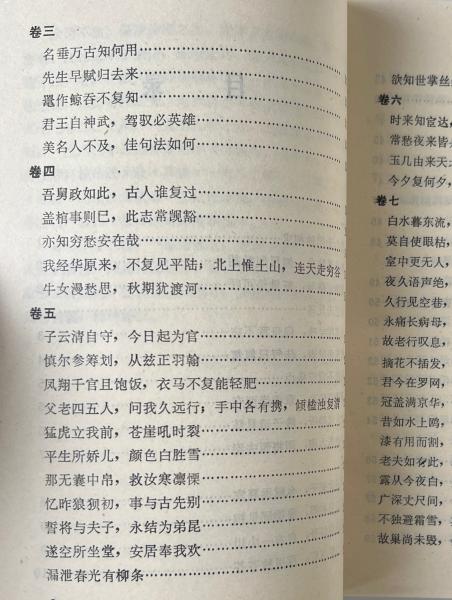 卷三
名垂万古知何用……
先生早赋归去来……
毫作鲸吞不复知……
君王自神武，驾驭必英雄……
美名人不及，佳句法如何……
卷四
吾舅政如此，古人谁复过……
盖棺事则已，此志常觊豁……
亦知穷愁安在哉……
我经华原来，不复见平陆；北上惟土山，连天走穷谷
牛女漫愁思，秋期犹渡河……
卷五
子云清自守，今日起为官……
慎尔参筹划，从兹正羽翰……
凤翔千官且饱饭，衣马不复能轻肥……
父老四五人，问我久远行；手中各有携，倾榼浊复清
猛虎立我前，苍崖吼时裂……
平生所娇儿，颜色白胜雪……
那无囊中帛，救汝寒凛慄……
忆昨狼狈初，事与古先别……
誓将与夫子，永结为弟昆……
遂空所坐堂，安居奉我欢……
漏泄春光有柳条……
欲知世掌丝
卷六
时来知宦达，
常愁夜来皆
玉几由来天
今夕复何夕，
卷七
白水暮东流，
莫自使眼枯，
室中更无人，
夜久语声绝，
久行见空巷，
永痛长病母，
故老行叹息，
摘花不插发，
君今在罗网，
冠盖满京华，
昔如水上鸥，
漆有用而割，
老夫如有此，
露从今夜白，
广深丈尺间，
不独避霜雪，
故巢尚未毁，